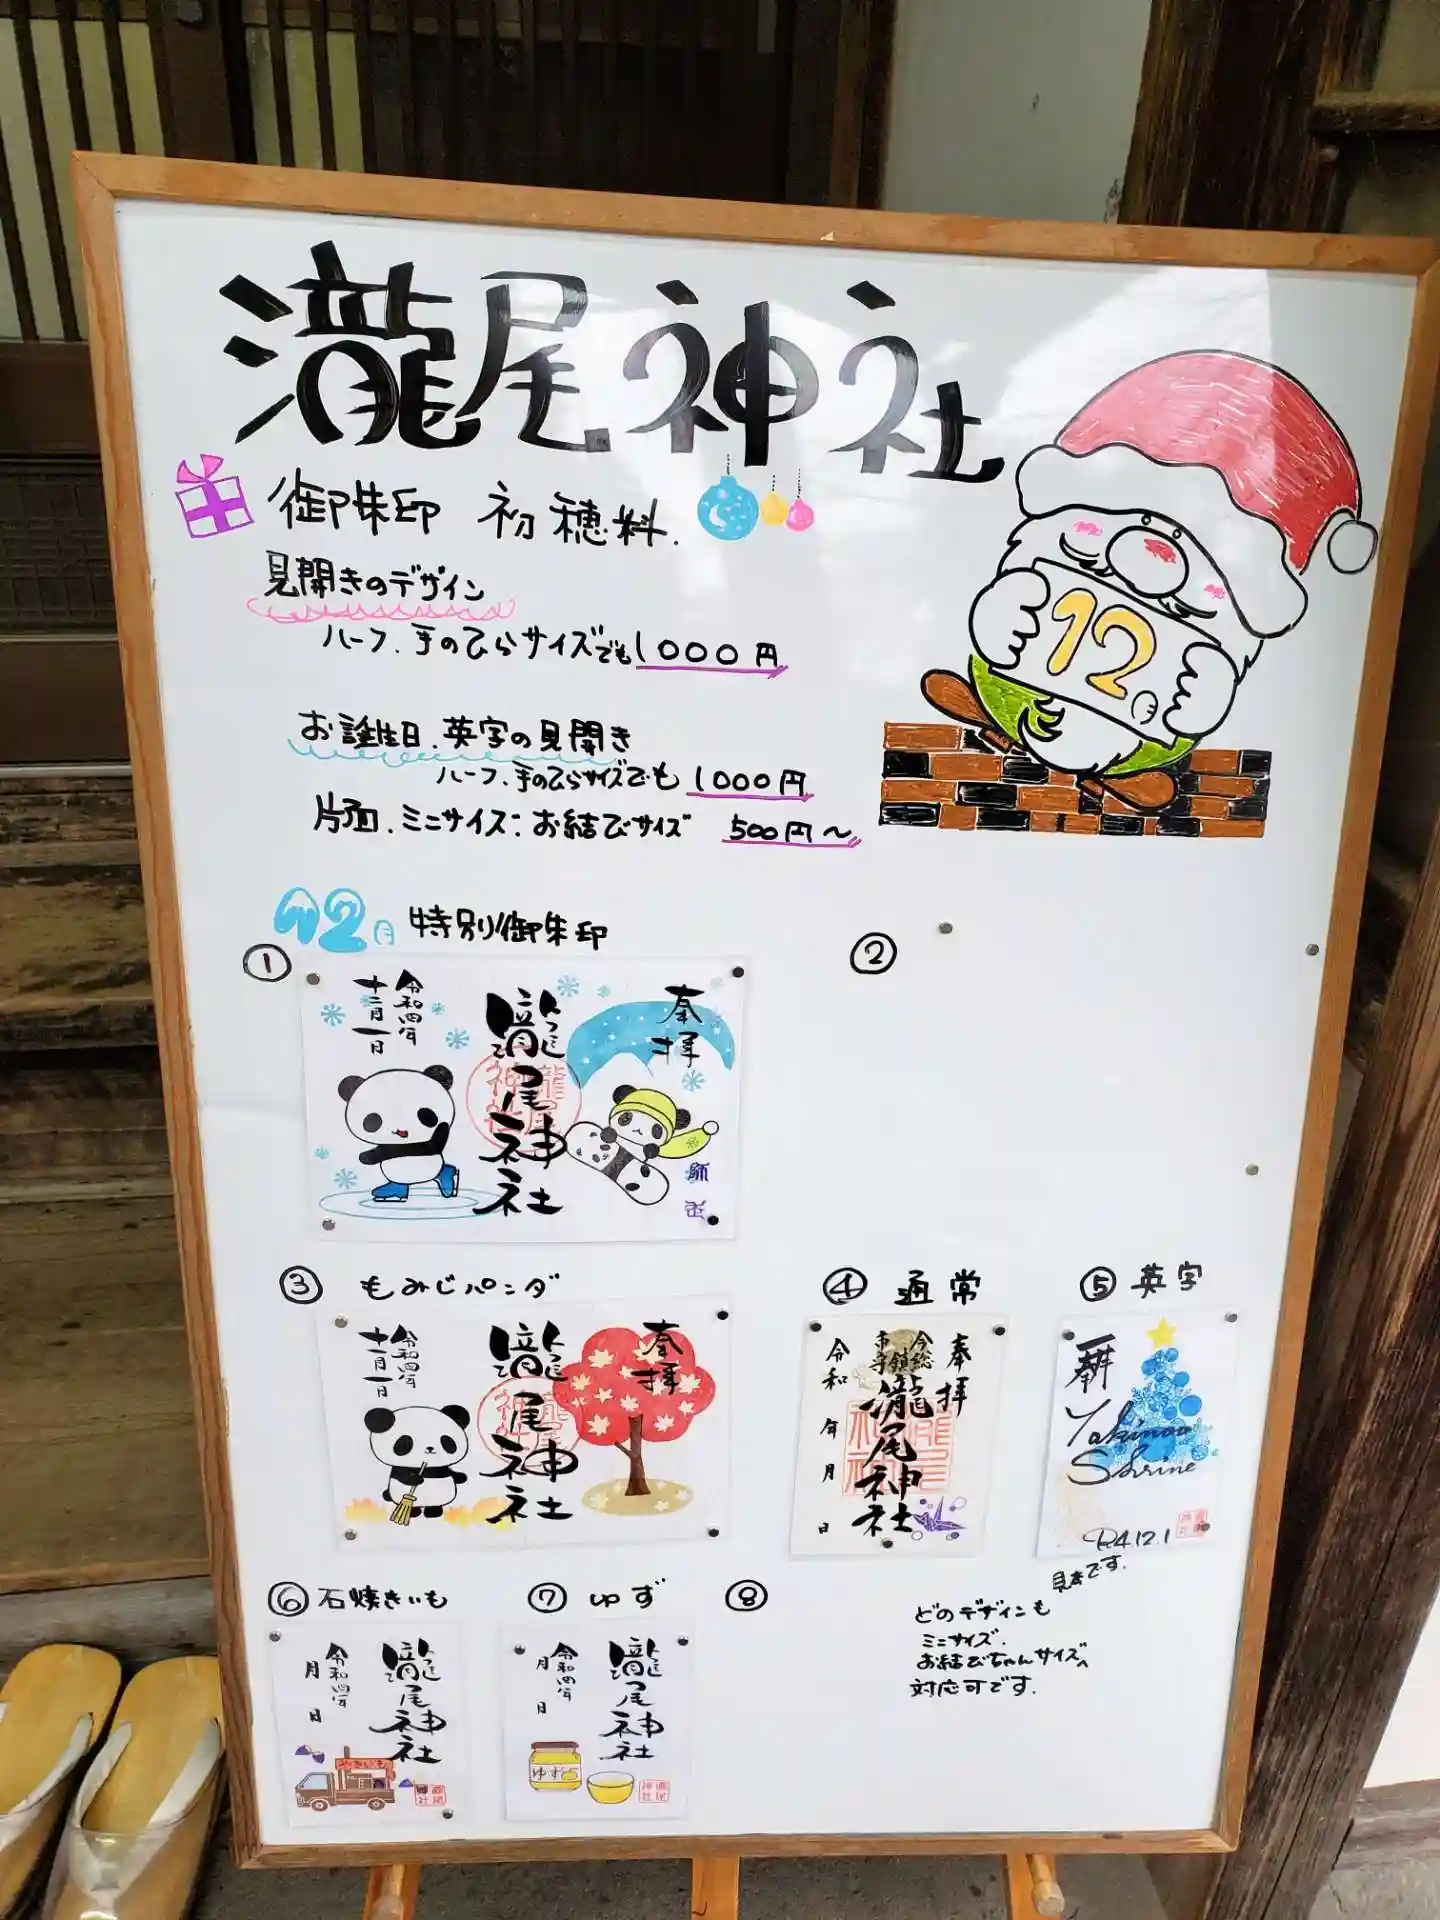 瀧尾神社
御朱印 初穂料.
見開きのデザイン
ハーフ.手のひらサイズでも1000円
12.
お誕生日.英字の見開き
ハーフ.手のひらサイズでも 1000円
片面.ミニサイズ:お結びサイズ 500円〜
12月 特別御朱印
①
奉拝
瀧尾神社
令和四年
十二月一日
②
③ もみじパンダ
奉拝
瀧尾神社
令和四年
十一月一日
④ 通常
奉拝
瀧尾神社
令和 年 月 日
⑤ 英字
Shrine
R4.12.1
見本です.
⑥ 石焼きいも
瀧尾神社
令和四年
月 日
⑦ ゆず
瀧尾神社
令和四年
月 日
ゆず
⑧
どのデザインも
ミニサイズ.
お結びちゃんサイズへ
対応可です.